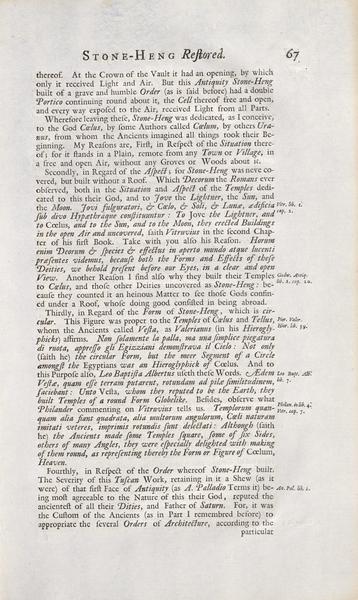 STONE-HENG Restored. 67
thereof. At the Crown of the Vault it had an opening, by which
only it received Light and Air. But this Antiquity Stone-Heng
built of a grave and humble Order (as is said before) had a double
Portico continuing round about it, the Cell thereof free and open,
and every way exposed to the Air, received Light from all Parts.
Wherefore leaving these, Stone-Heng was dedicated, as I conceive,
to the God Cœlus, by some Authors called Cœlum, by others Ura-
nus, from whom the Ancients imagined all things took their Be-
ginning. My Reasons are, First, in Respect of the Situation there-
of; for it stands in a Plain, remote from any Town or Village, in
a free and open Air, without any Groves or Woods about it.
Secondly, in Regard of the Aspect; for Stone-Heng was never co-
vered, but built without a Roof. Which Decorum the Romans ever
observed, both in the Situation and Aspect of the Temples dedi-
cated to this their God, and to Jove the Lightner, the Sun, and
the Moon. Jovi fulguratori, & Cœlo, & Soli, & Lunæ, ædificia
sub divo Hypathraque constituuntur: To Jove the Lightner, and
to Cœlus, and to the Sun, and to the Moon, they erected Buildings
in the open Air and uncovered, saith Vitruvius in the second Chap-
ter of his first Book. Take with you also his Reason. Horum
enim Deorum & species & effectus in aperto mundo atque lucenti
præsentes videmus, because both the Forms and Effects of these
Deities, we behold present before our Eyes, in a clear and open
View. Another Reason I find also why they built their Temples
to Cœlus, and those other Deities uncovered as Stone-Heng: be-
cause they counted it an heinous Matter to see those Gods confin-
ed under a Roof, whose doing good consisted in being abroad.
Thirdly, in Regard of the Form of Stone-Heng, which is cir-
cular. This Figure was proper to the Temples of Cœlus and Tellus,
whom the Ancients called Vesta, as Valerianus (in his Hierogly-
phicks) affirms. Non solamente la palla, ma una simplice piegatura
di ruota, appresso gli Egizziani demonstrava il Cielo: Not only
(saith he) the circular Form, but the meer Segment of a Circle
amongst the Egyptians was an Hieroglyphick of Cœlus. And to
this Purpose also, Leo Baptista Albertus useth these Words. Ædem
Vestæ, quam esse terram putarent, rotundam ad pilæ similitudinem,
faciebant: Unto Vesta, whom they reputed to be the Earth, they
built Temples of a round Form Globelike. Besides, observe what
Philander commenting on Vitruvius tells us. Templorum quan-
quam alia fiant quadrata, alia multorum angulorum, Cœli naturam
imitati veteres, imprimis rotundis sunt delectati: Although (saith
he) the Ancients made some Temples square, some of six Sides,
others of many Angles, they were especially delighted with making
of them round, as representing thereby the Form or Figure of Cœlum,
Heaven.
Fourthly, in Respect of the Order whereof Stone-Heng built.
The Severity of this Tuscan Work, retaining in it a Shew (as it
were) of that first Face of Antiquity (as A. Palladio Terms it) be-
ing most agreeable to the Nature of this their God, reputed the
ancientest of all their Dities, and Father of Saturn. For, it was
the Custom of the Ancients (as in Part I remembred before) to
appropriate the several Orders of Architecture, according to the
particular
Vitr. lib. 1.
cap. 2.
lib. 2. cap. 10.
Pier. Valer.
Hier. lib. 39.
Leo Bap. Alb.
lib. 7.
Philan. in lib. 4.
Vitr. cap. 7.
An. Pal. lib. 1.